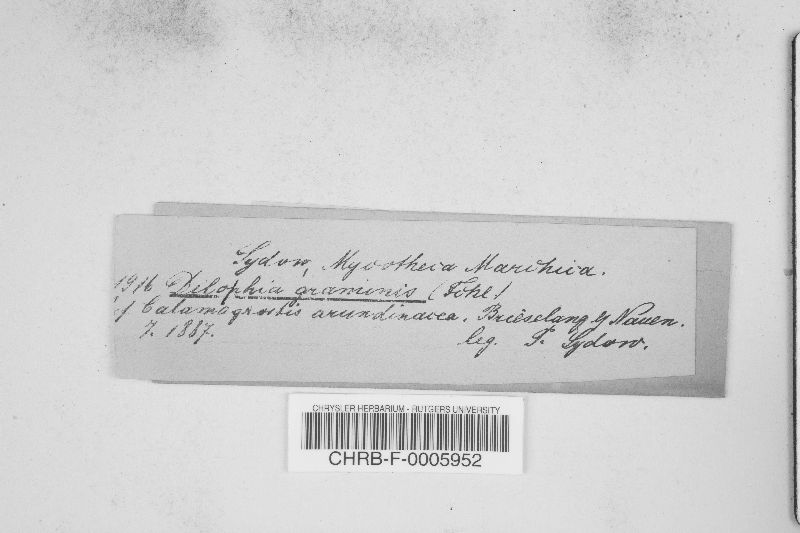 Sydow, Mycotheca Marchica.
1916 Dilophia graminis (Fckl.)
f Calamagrostis arundinacea. Brieselang b/ Nauen.
7. 1887. leg. P. Sydow.
CHRYSLER HERBARIUM - RUTGERS UNIVERSITY
CHRB-F-0005952